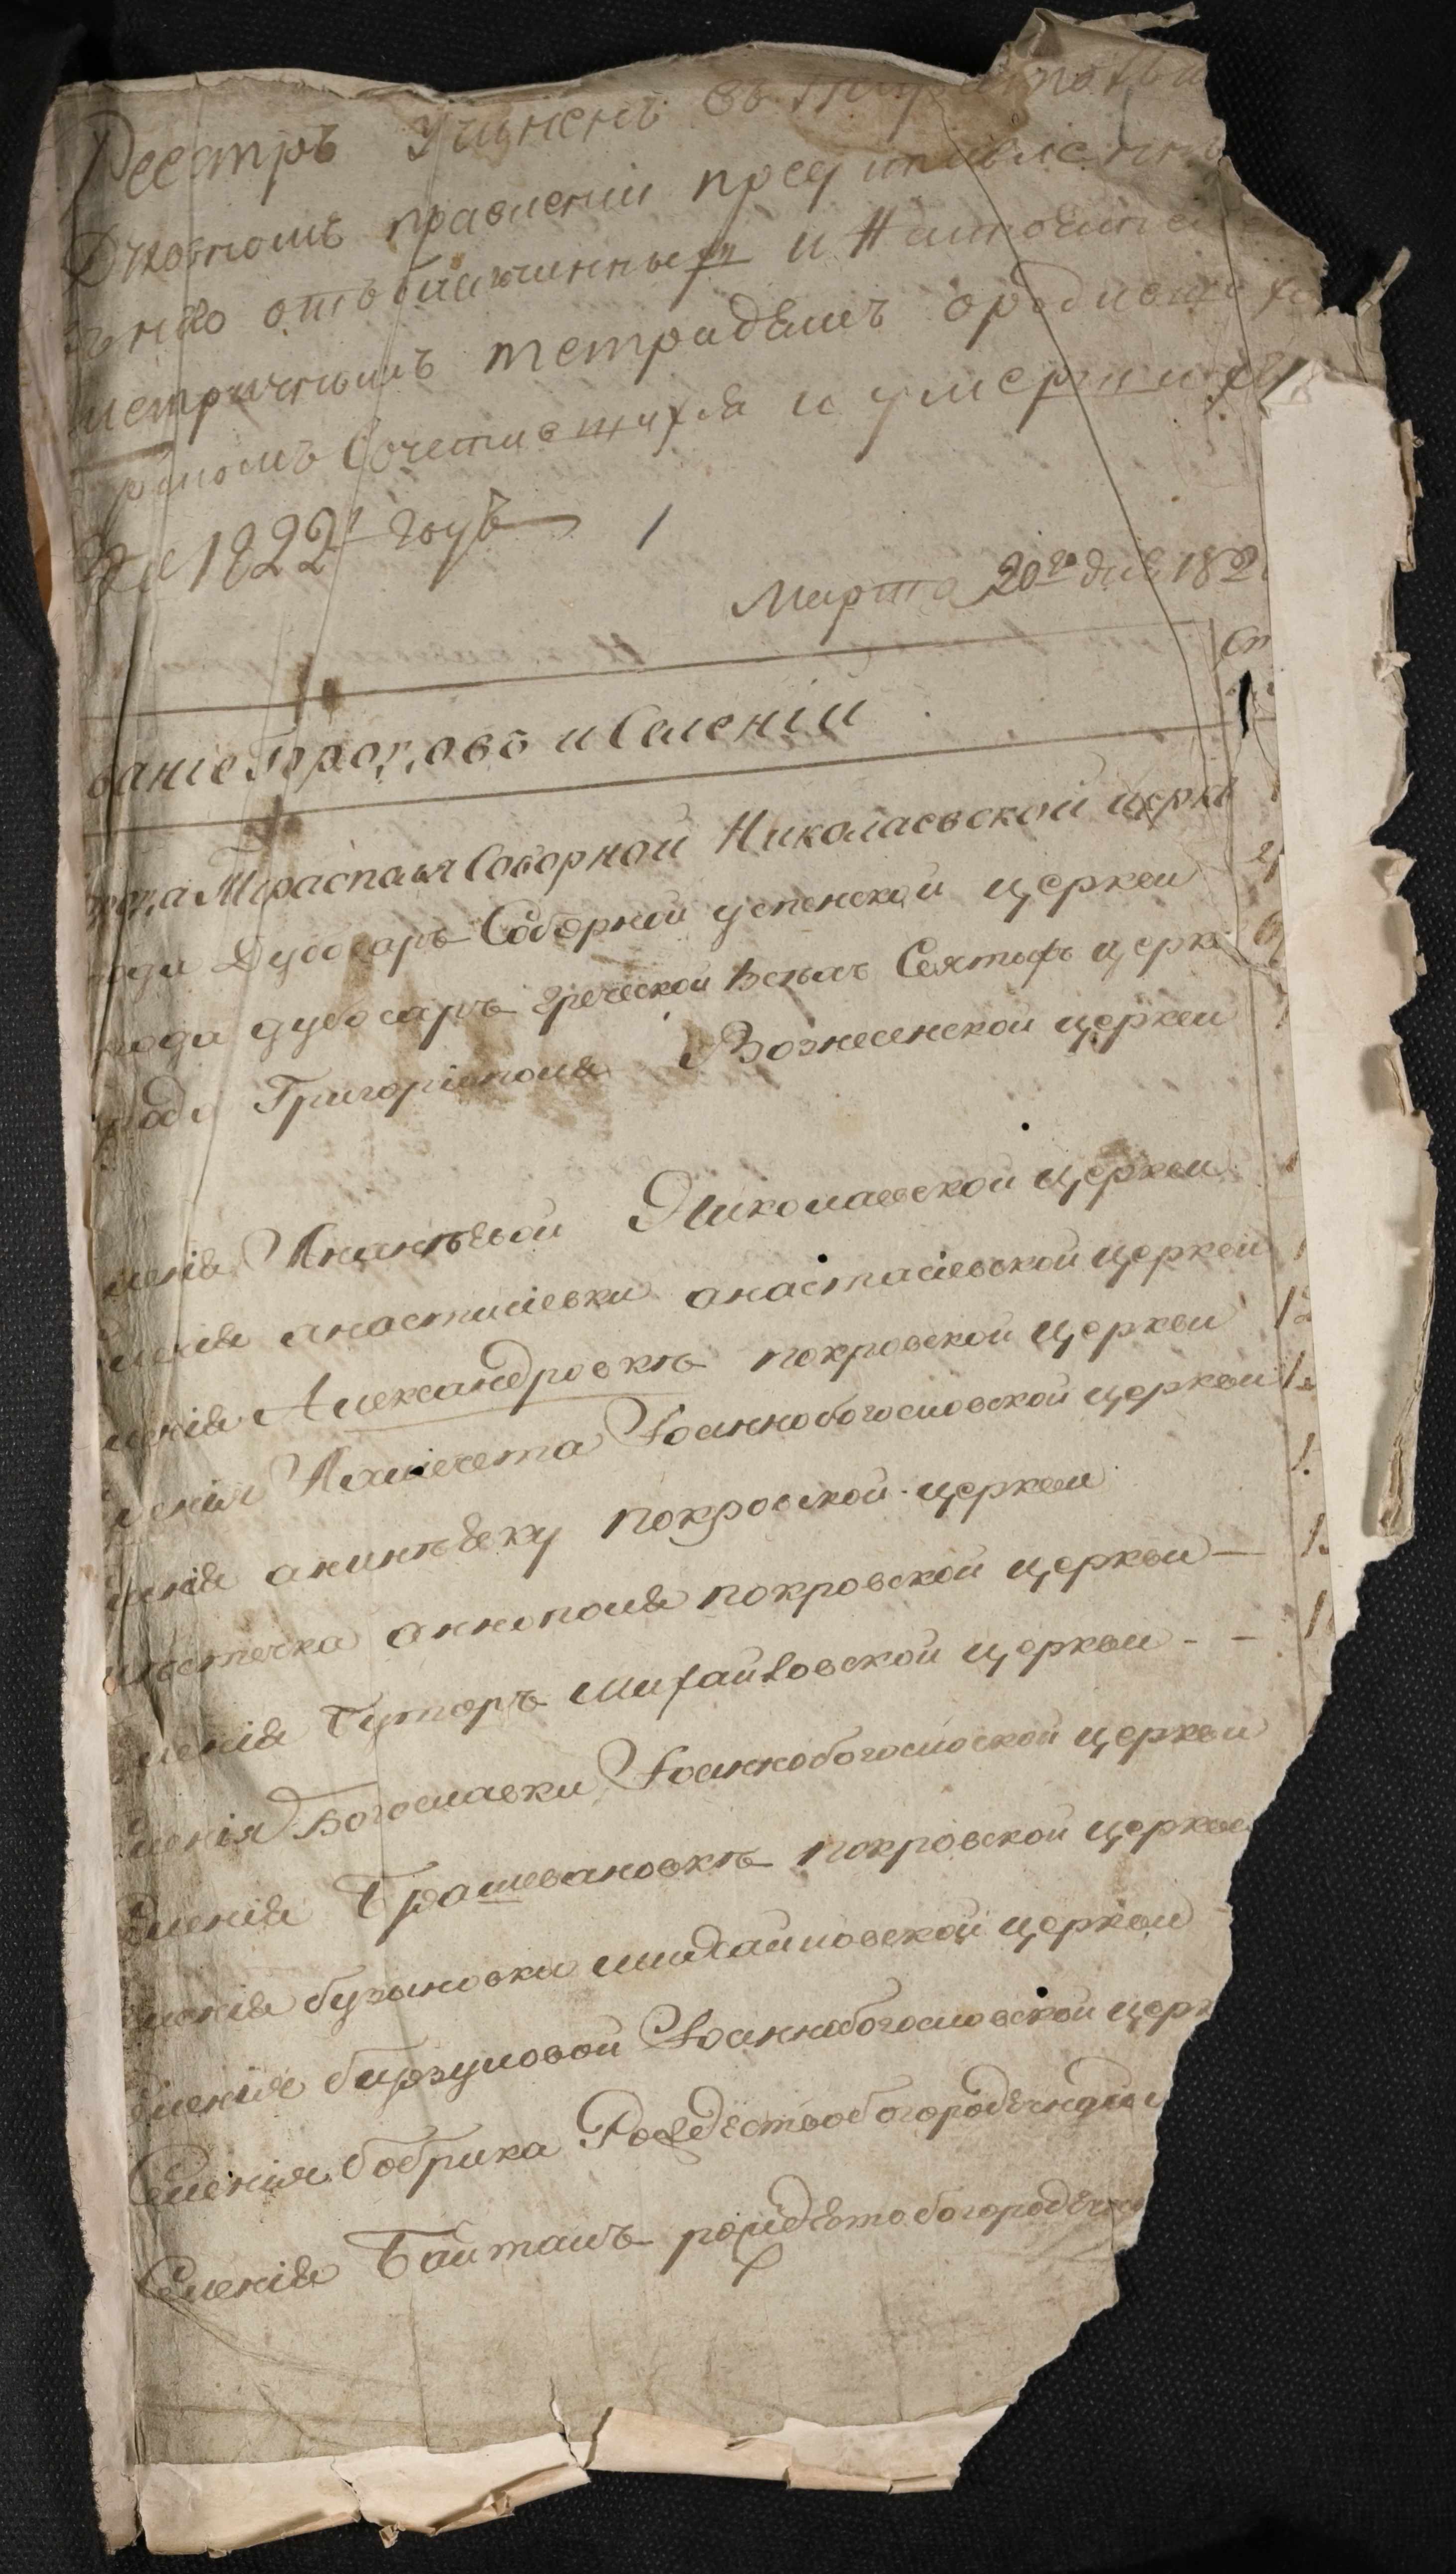 Реестръ Учиненъ въ Тирасполь
Духовномъ правленіи представленн
отъ благочинныхъ и Настоятел
метричнымъ тетрадямъ ородивших
Бракомъ Сочетавшихся и умерших
За 1822й годъ
1
Марта 20го дня 182
Ст
ваніе Городовъ и Селеніи
рода Тирасполя Соборной Николаевской церкв
рода Дубосаръ Соборной успенской церкви
рода дубосаръ греческой Всѣхъ Святыхъ церкв
рода Григоріополя Вознесенской церкви
ленія Ананьевой Николаевской церкви
ленія анастасіевки анастасіевской церкви
ленія Александровкѣ покровской церкви 12
ленія Іоаннобогословской церкви 1
ленія покровской церкви 1
мѣстечка аннополя покровской церкви — 1
ленія Буторъ михайловской церкви - - 1
еленія Богославки Іоаннобогословской церкви
еленія Брашевановкѣ покровской церкви
еленія бузиновки михайловской церкви
еленія бирзуловой Іоаннобогословской церк
Селенія бобрика Рождествобогородичной
Селенія Байталъ рождествобогородично